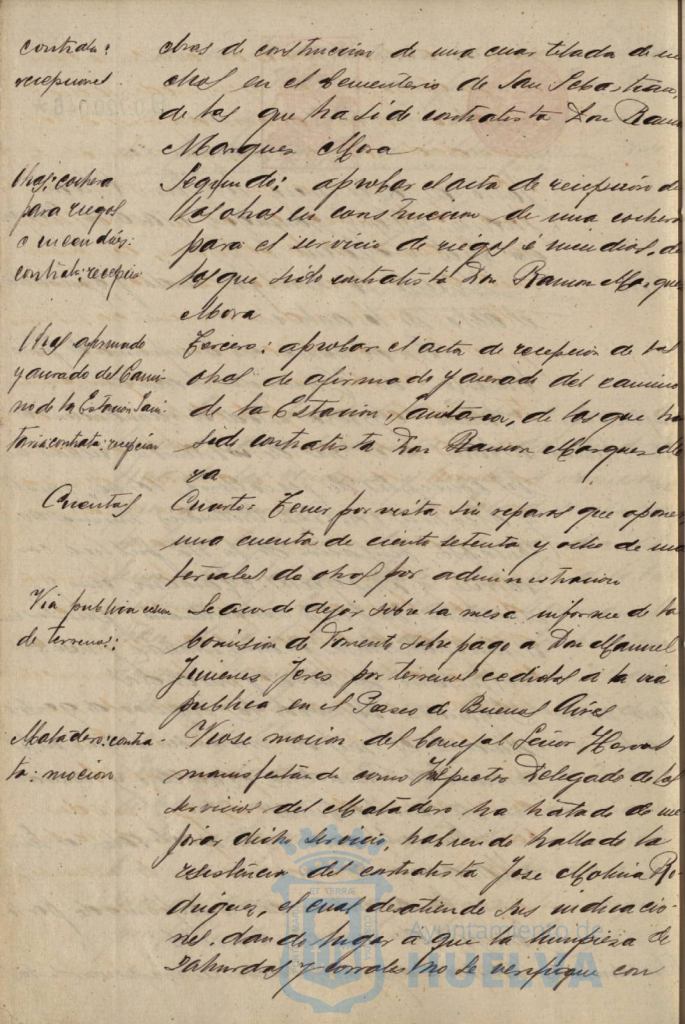 contrata:
recepciones
obras de construccion de una cuartelada de ni
chos en el Cementerio de San Sebastian,
de las que ha sido contratista Don Ramon
Marquez Mora
Obras: cochera
para riegos
e incendios:
contrata: recepcion
Segundo: aprobar el acta de recepcion de
las obras en construccion de una cochera
para el servicio de riegos é incendios, de
las que sido contratista Don Ramon Marquez
Mora
Obras afirmado
y acerado del Cami-
no de la Estacion Sani-
taria contrata: recepcion
Tercero: aprobar el acta de recepcion de las
obras de afirmado y acerado del camino
de la Estacion Sanitaria, de las que ha
sido contratista Don Ramon Marquez Mo
ra
Cuentas
Cuarto: Tener por vista sin reparos que oponer,
una cuenta de ciento setenta y ocho de ma
teriales de obras por administracion
Via publica cesion
de terrenos:
Se acordo dejar sobre la mesa informe de la
Comision de Fomento sobre pago á Don Manuel
Jimenes Jeres por terrenos cedidos á la via
publica en el Paseo de Buenos Aires
Matadero: contra-
ta: mocion
Viose mocion del Concejal Señor
manifestando como Inspector Delegado de los
servicios del Matadero ha tratado de me
jorar dicho servicio, habiendo hallado la
resistencia del contratista Jose Molina Ro-
driguez, el cual desatiende sus indicacio-
nes, dando lugar a que la limpieza de
zahurdas y corrales no se verifique con
Ayuntamiento de
HUELVA